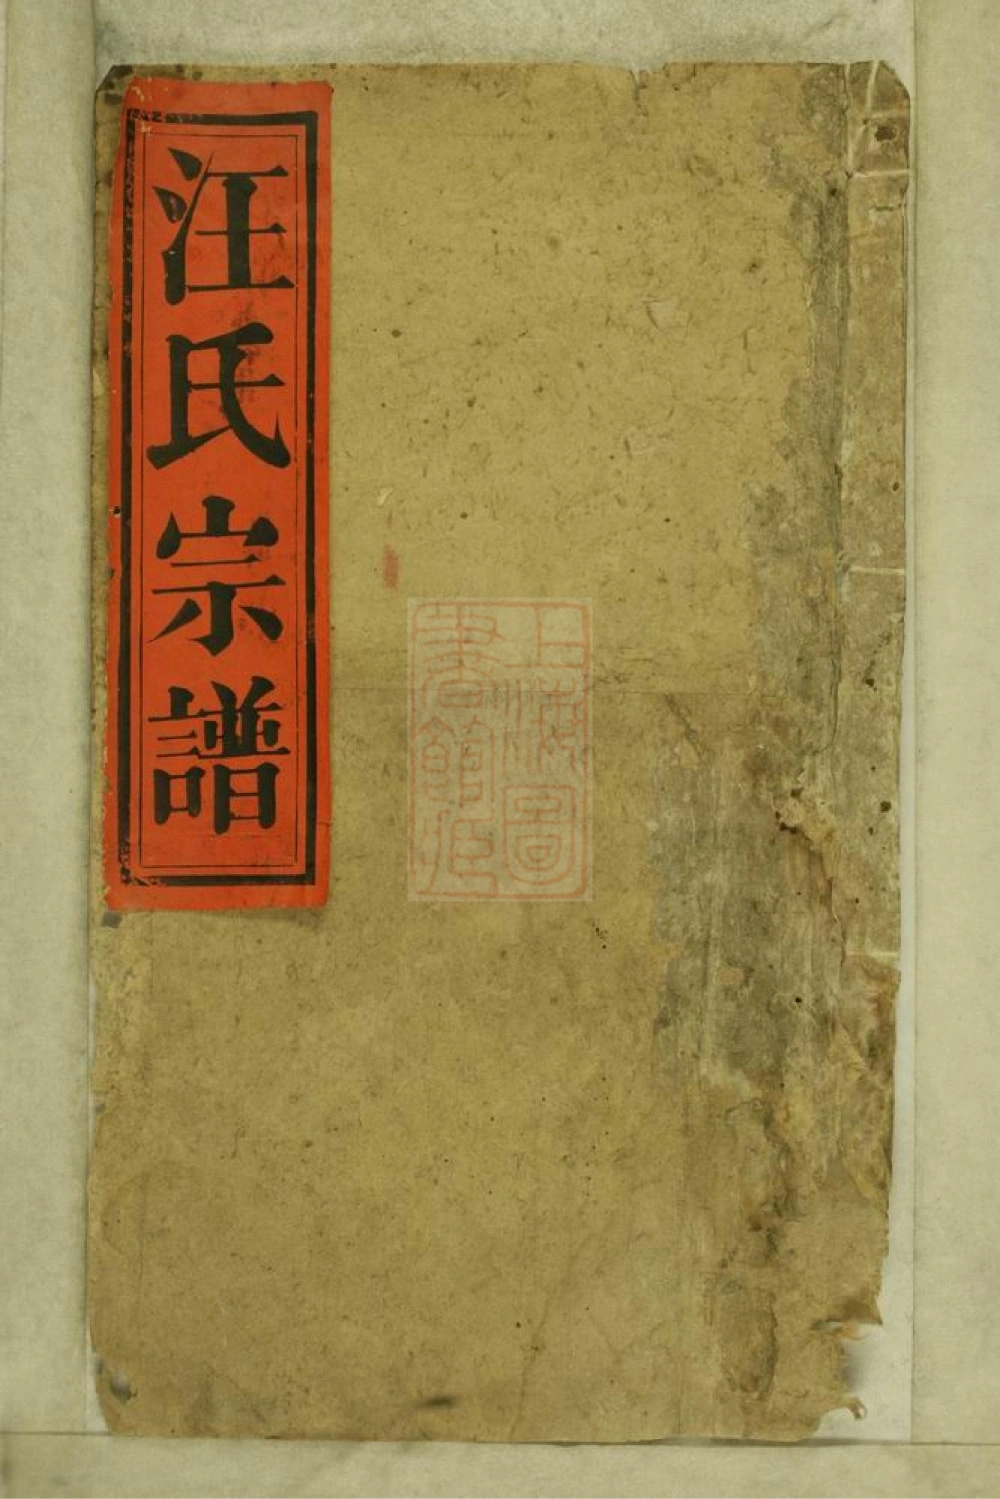 汪氏宗譜
上海圖
書館藏